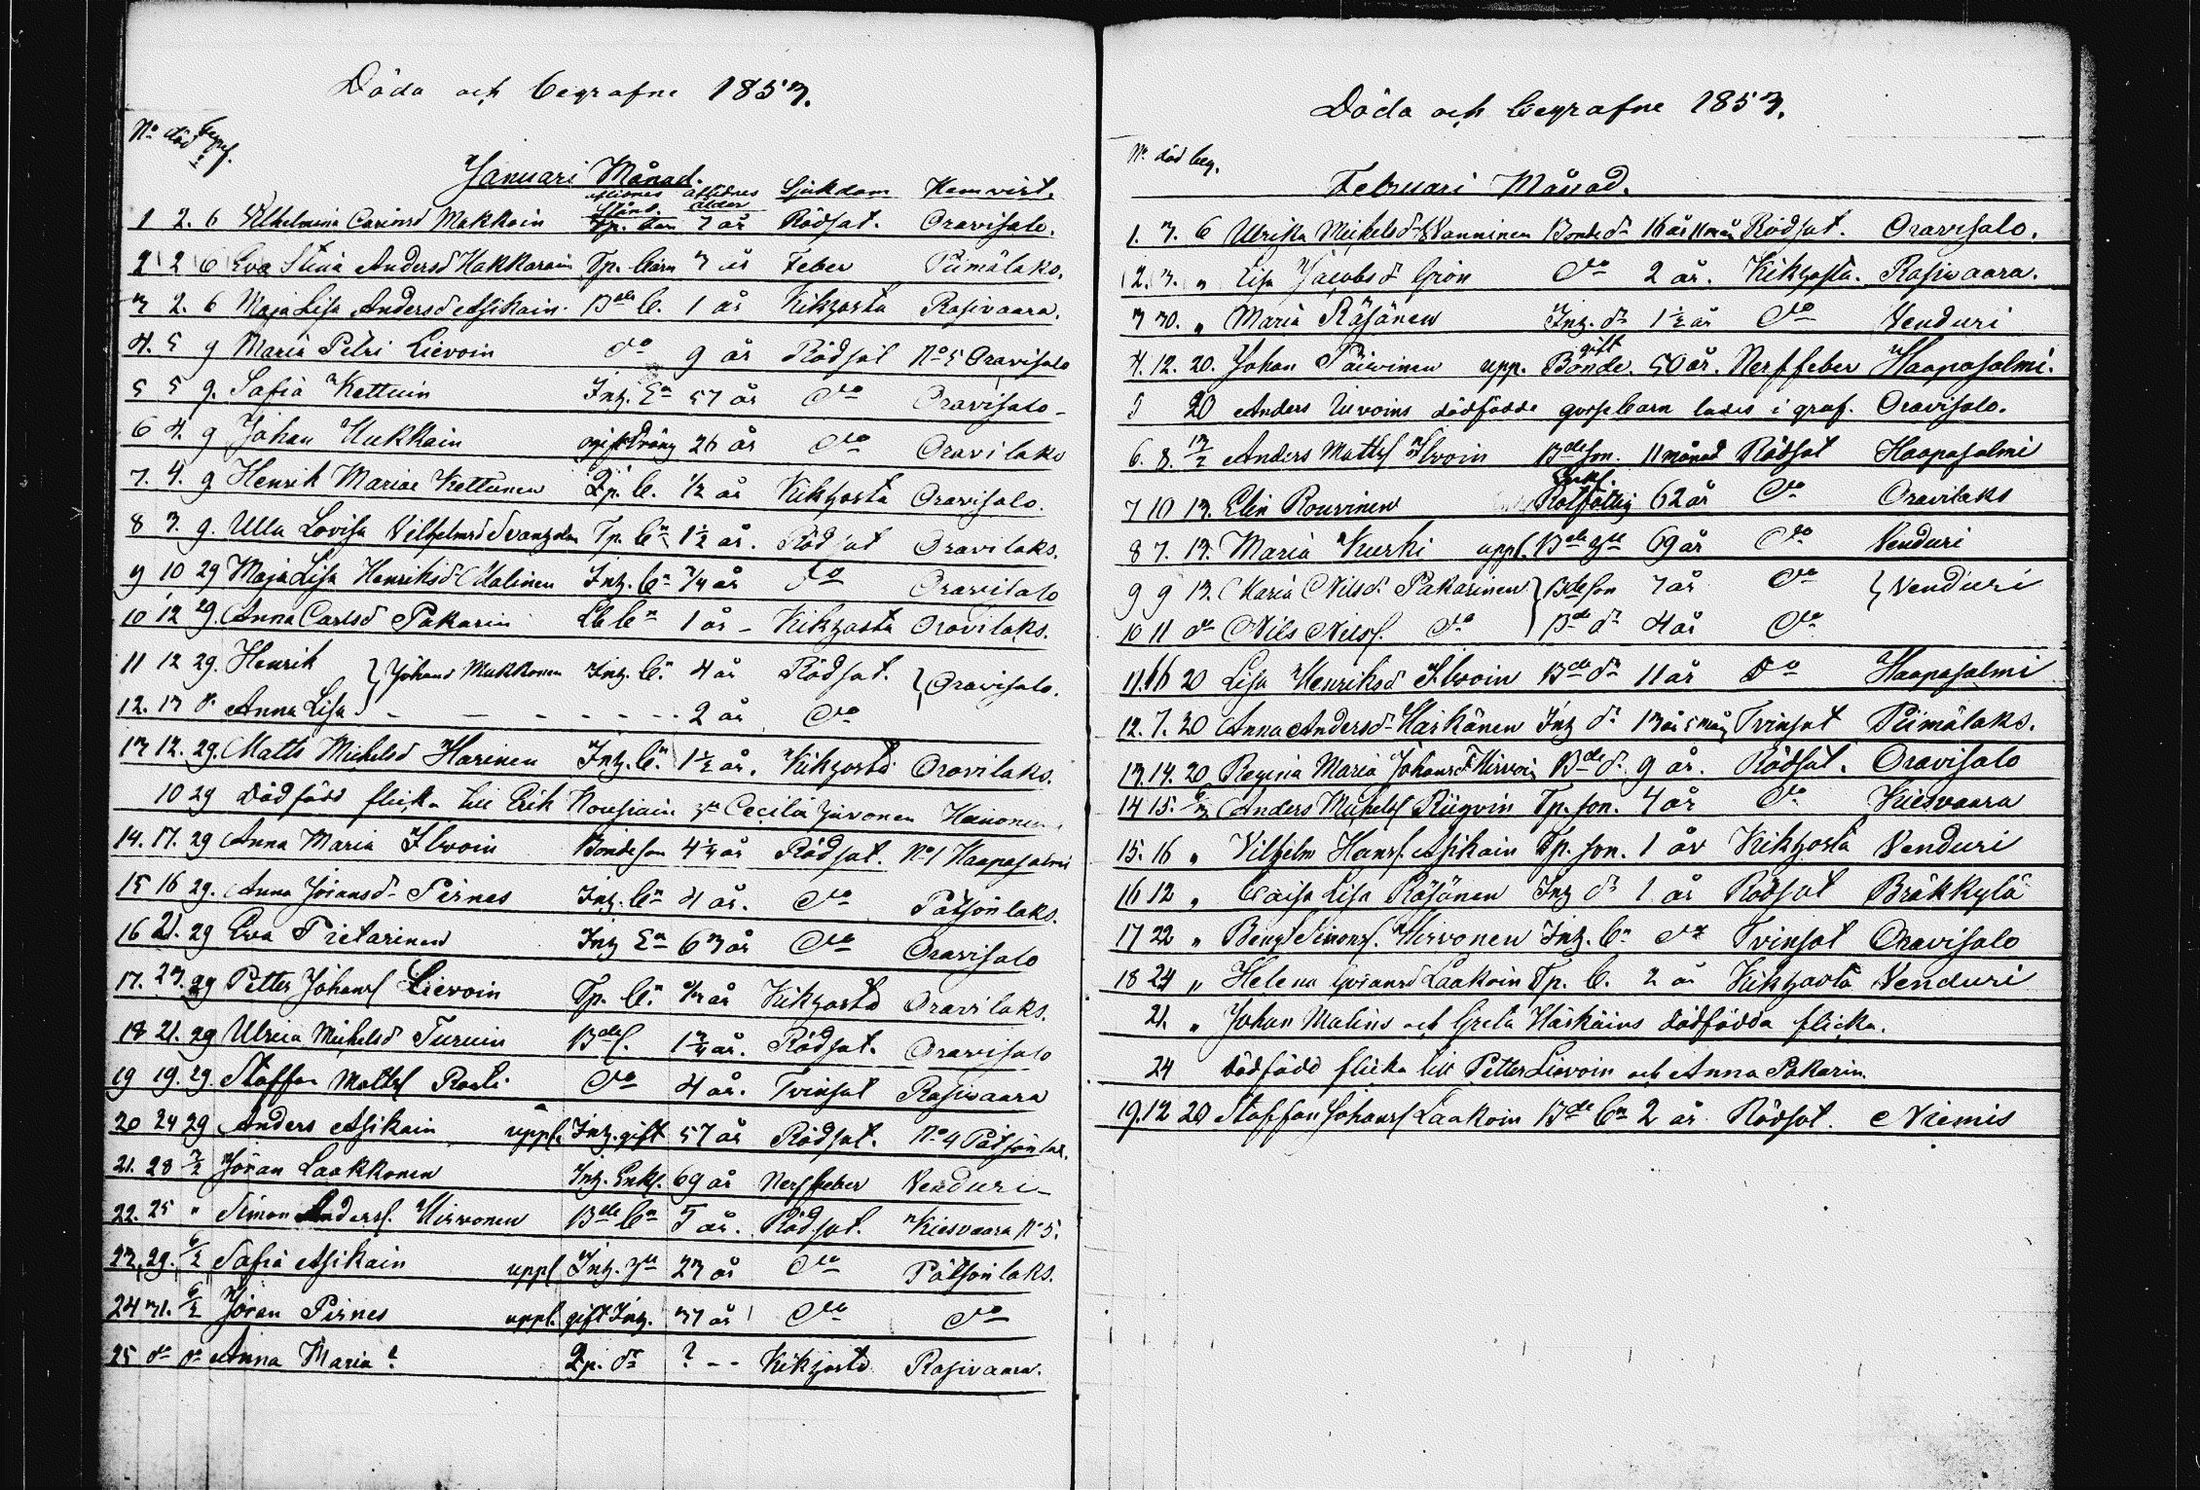 Döda och begrafne 1853.
No död begraf.
Januari Månad.
aflidnes Stånd. aflidnes ålder Sjukdom Hemvist.
1 2. 6 Vilhelmina Carinsd Makkoin Tp. barn 7 år Rödsot. Oravisalo.
2 2 6 Eva Stina Andersd Hakkarain Tp. barn 3 år Feber Piimälaks.
3 2. 6 Maja Lisa Andersd Asikain. Bde b. 1 år Kikhosta Rasivaara.
4. 5 9 Maria Petri Lievoin do 9 år Rödsot No 5 Oravisalo
5 5 9. Safia Kettuin Inh. En 57 år do Oravisalo
6 4. 9 Johan Mukkain ogift dräng 26 år do Oravilaks
7. 4. 9 Henrik Mariae Kettunen Lp. b. 1/2 år Kikhosta Oravisalo.
8 3. 9. Ulla Lovisa Vilhelmsd Tp. bn 1 1/2 år. Rödsot Oravilaks.
9 10 29 Maja Lisa Henriksd Malinen Inh. bn 3/4 år do Oravisalo
10 12 29. Anna Carlsd Pakarin bn 1 år Kikhosta Oravilaks.
11 12 29. Henrik } Johans Mukkonen Inh. bn. 4 år Rödsot. } Oravisalo.
12. 13 do Anna Lisa } - - - - - - 2 år do
13 12. 29. Matts Michelsd Harinen Inh. bn. 1 1/2 år. Kikhosta Oravilaks.
10 29 dödfödd flicka till Erik Nousiain Cecilia Juvonen Heinonen.
14. 17. 29 Anna Maria Ilvoin Bondeson 4 1/4 år Rödsot. No 1 Haapasalmi
15 16 29. Anna Jöransd Pirnes Inh. bn 4 år. do Pötsönlaks.
16 21. 29 Eva Pietarinen Inh En 63 år do Oravisalo
17. 23. 29 Petter Johans Lievoin Tp. bn. 3/4 år Kikhosta Oravilaks.
18 21. 29 Ulrica Michelsd Turuin Bde. 1 3/4 år. Rödsot. Oravisalo
19 19. 29. Staffan Matts Rosti do 4 år. Tvinsot Rasivaara
20 24 29 Anders Asikain uppl. Inh. gift 57 år Rödsot. No 4 Pötsönlak.
21. 28 3/2 Jöran Laakkonen Inh. Enkl. 69 år Nerffeber Venduri
22. 25 " Simon Anders. Hirvonen Bde bn 5 år. Rödsot. Kiesvaara No 5.
23. 29. 6/2 Safia Asikain uppl Inh. 23 år do Pötsönlaks.
24 31. 6/2 Jöran Pirnes uppl. gift Inh. 37 år do do
25 do do Anna Maria? Lp. dr ? - - Kikhosta Rasivaara.
Döda och begrafne 1853.
No död beg.
Februari Månad.
1. 3. 6 Ulrika Michelsd Vanninen Bonde dr 16 år 11 mån Rödsot. Oravisalo.
2. 3. " Lisa Jacobsd Grön do 2 år. Kikhosta. Rasivaara.
3 30. " Maria Räsänen Inh. dr 1 1/2 år do Venduri
4. 12. 20. Johan Päivinen upp. gift Bonde. 50 år. Nerffeber Haapasalmi.
5 20 Anders Lievoins dödfödde gossebarn lades i graf. Oravisalo.
6. 8. 13/2 Anders Matts Ilvoin Bdeson. 11 månad Rödsot Haapasalmi
7 10 13. Elin Rouvinen Enkl. Rotfattig 62 år do Oravilaks
8 7. 13. Maria Kurki uppl. Bde 69 år do Venduri
9 9 13. Maria Nilsd. Pakarinen } Bdeson 7 år do } Venduri
10 11 do Nils Nils. do } Bde dr 4 år do
11. 16 20 Lisa Henriksd Ilvoin Bde dr 11 år do Haapasalmi
12. 7. 20 Anna Andersd Häikänen Inh dr 13 år 5 mån Tvinsot Piimälaks.
13. 14. 20 Regina Maria Johansd Hirvoin Bde dr. 9 år. Rödsot. Oravisalo
14 15. 6/3 Anders Michels Tp. son. 4 år do Kiesvaara
15. 16 " Vilhelm Hans. Asikain Tp. son. 1 år Kikhosta Venduri
16 12 " Caisa Lisa Räsänen Inh dr 1 år Rödsot Bräkkylä
17 22 " Bengt Simons. Hirvonen Inh. bn do Tvinsot Oravisalo
18 24 " Helena Göransd Laakoin Tp. b. 2 år Kikhosta Venduri
21. " Johan Malins och Greta Häikäins dödfödda flicka.
24 dödfödd flicka till Petter Lievoin och Anna Pakarin.
19. 12 20 Staffan Johans Laakoin Bde bn 2 år Rödsot. Niemis